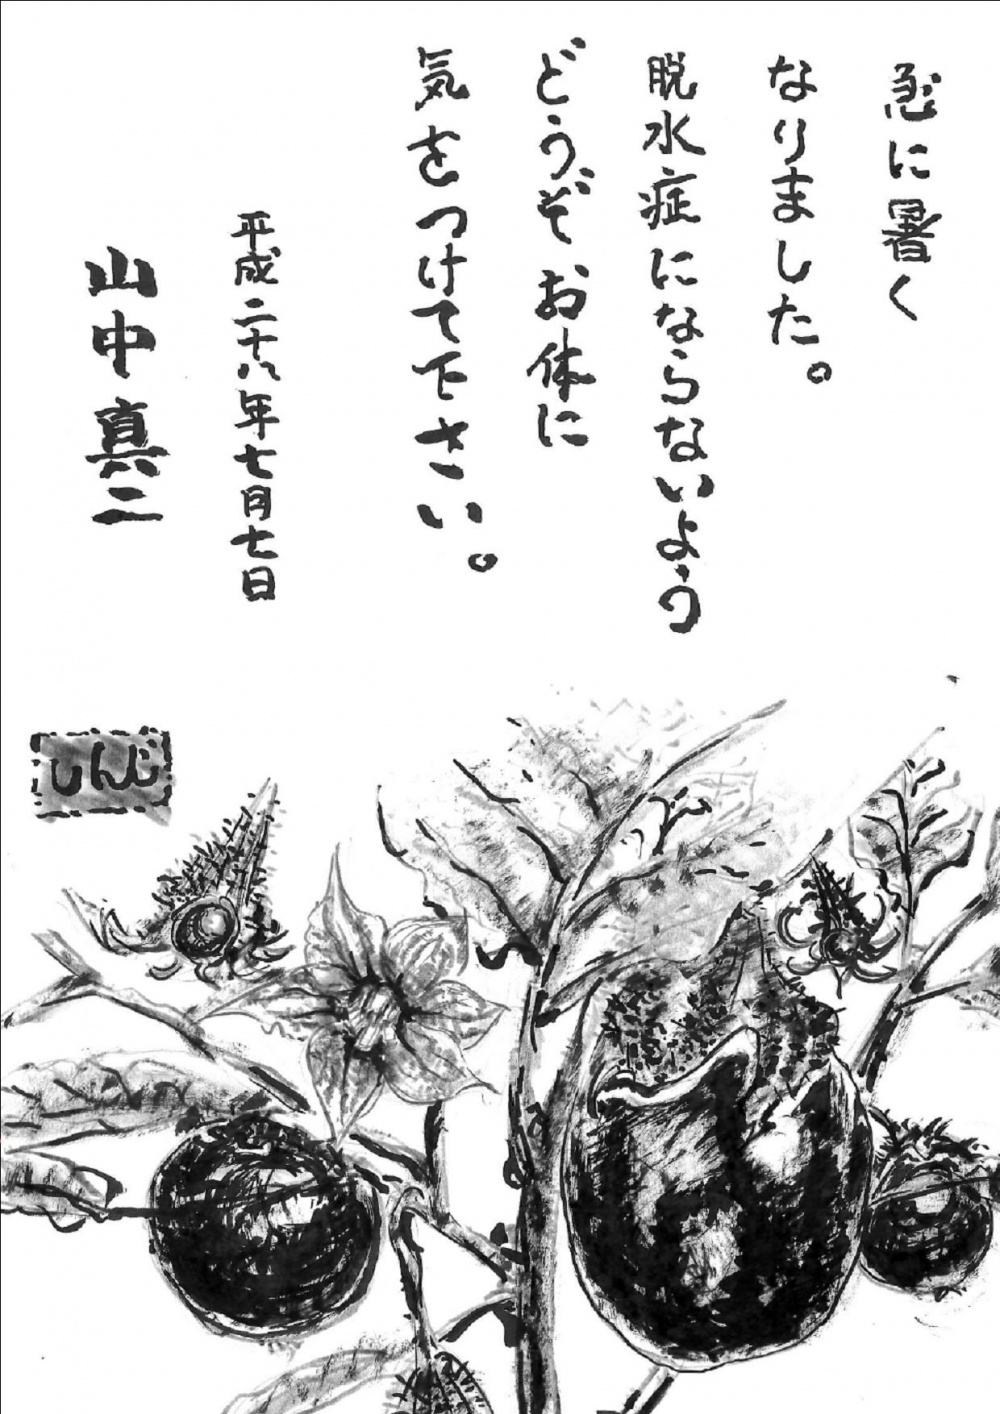 急に暑く
なりました。
脱水症にならないよう
どうぞお体に
気をつけて下さい。
平成二十八年七月七日
山中真二
しんじ